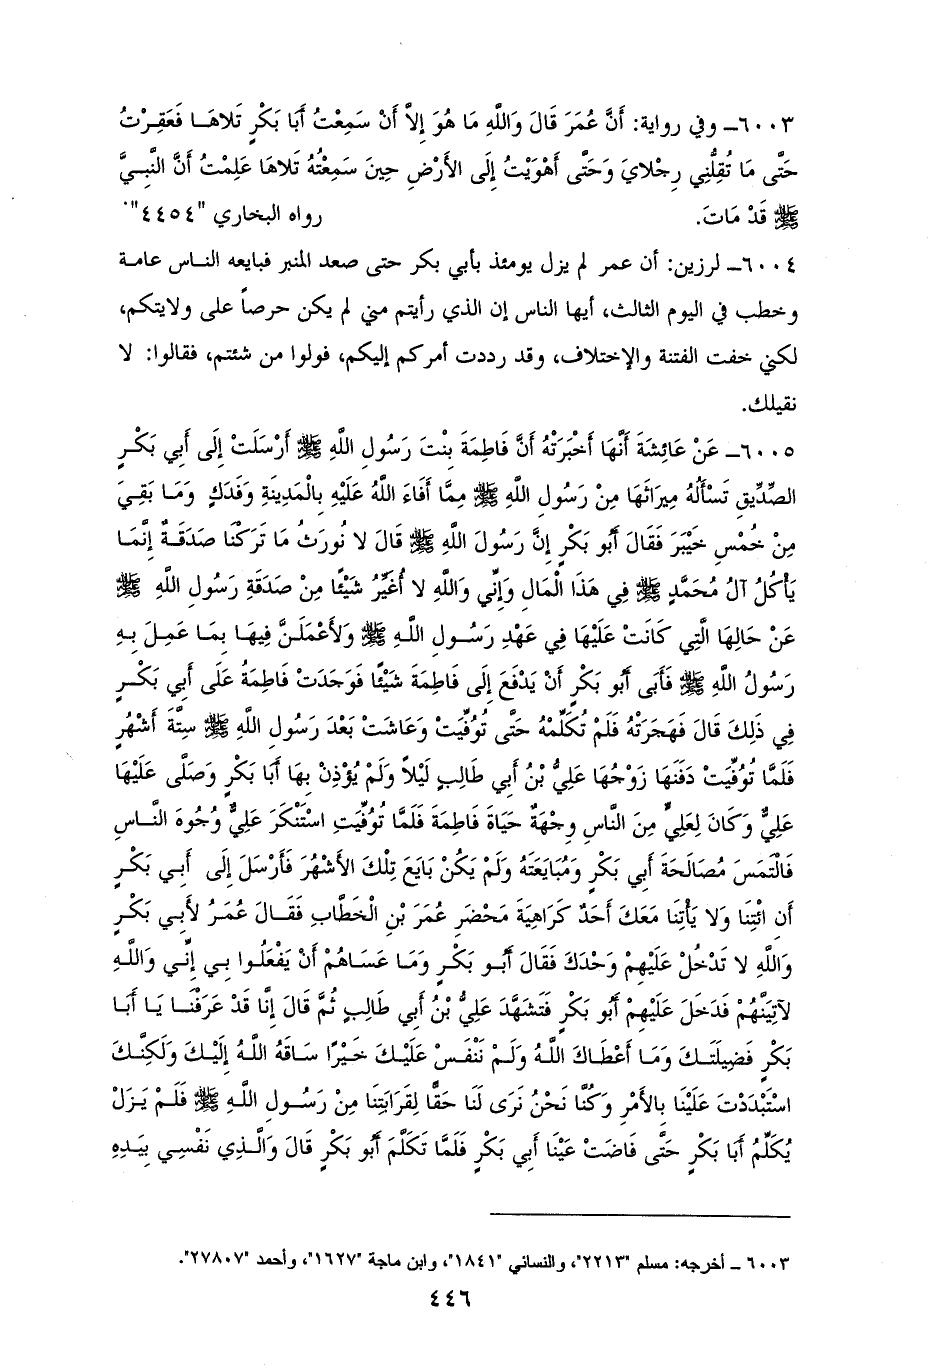 ٦٠٠٣ـ وفي رواية: أَنَّ عُمَرَ قَالَ وَاللَّهِ مَا هُوَ إِلاَّ أَنْ سَمِعْتُ أَبَا بَكْرٍ تَلاَهَـا فَعَقِرْتُ
حَتَّى مَا تُقِلُّنِي رِجْلاَيَ وَحَتَّى أَهْوَيْتُ إِلَى الأَرْضِ حِينَ سَمِعْتُهُ تَلاهَا عَلِمْتُ أَنَّ النَّبِيَّ
ﷺ قَدْ مَاتَ. رواه البخاري "٤٤٥٤".
٦٠٠٤ـ لرزين: أن عمر لم يزل يومئذ بأبي بكر حتى صعد المنبر فبايعه النـاس عامـة
وخطب في اليوم الثالث، أيها الناس إن الذي رأيتم مني لم يكن حرصاً على ولايتكم،
لكني خفت الفتنة والإختلاف، وقد رددت أمركم إليكم، فولوا من شئتم، فقالوا: لا
نقيلك.
٦٠٠٥ـ عَنْ عَائِشَةَ أَنَّهَا أَخْبَرَتْهُ أَنَّ فَاطِمَةَ بِنْتَ رَسُولِ اللَّهِ ﷺ أَرْسَلَتْ إِلَى أَبِي بَكْرٍ
الصِّدِّيقِ تَسْأَلُهُ مِيرَاثَهَا مِنْ رَسُولِ اللَّهِ ﷺ مِمَّا أَفَاءَ اللَّهُ عَلَيْهِ بِالْمَدِينَةِ وَفَدَكٍ وَمَـا بَقِـيَ
مِنْ خُمْسِ خَيْبَرَ فَقَالَ أَبُو بَكْرٍ إِنَّ رَسُولَ اللَّهِ ﷺ قَالَ لا نُورَثُ مَا تَرَكْنَا صَدَقَـةٌ إِنَّمَـا
يَأْكُلُ آلُ مُحَمَّدٍ ﷺ فِي هَذَا الْمَالِ وَإِنِّي وَاللَّهِ لا أُغَيِّرُ شَيْئًا مِنْ صَدَقَةِ رَسُولِ اللَّهِ ﷺ
عَنْ حَالِهَا الَّتِي كَانَتْ عَلَيْهَا فِي عَهْدِ رَسُـولِ اللَّـهِ ﷺ وَلأَعْمَلَـنَّ فِيهَـا بِمَـا عَمِـلَ بِـهِ
رَسُولُ اللَّهِ ﷺ فَأَبَى أَبُو بَكْرٍ أَنْ يَدْفَعَ إِلَى فَاطِمَةَ شَيْئًا فَوَجَدَتْ فَاطِمَةُ عَلَى أَبِي بَكْـرٍ
فِي ذَلِكَ قَالَ فَهَجَرَتْهُ فَلَمْ تُكَلِّمْهُ حَتَّى تُوُفِّيَتْ وَعَاشَتْ بَعْدَ رَسُولِ اللَّهِ ﷺ سِتَّةَ أَشْهُرٍ
فَلَمَّا تُوُفِّيَتْ دَفَنَهَا زَوْجُهَا عَلِيُّ بْنُ أَبِي طَالِبٍ لَيْلاً وَلَمْ يُؤْذِنْ بِهَا أَبَا بَكْرٍ وَصَلَّى عَلَيْهَا
عَلِيٌّ وَكَانَ لِعَلِيٍّ مِنَ النَّاسِ وِجْهَةٌ حَيَاةَ فَاطِمَةَ فَلَمَّا تُوُفِّيَتِ اسْتَنْكَرَ عَلِيٌّ وُجُوهَ النَّـاسِ
فَالْتَمَسَ مُصَالَحَةَ أَبِي بَكْرٍ وَمُبَايَعَتَهُ وَلَمْ يَكُنْ بَايَعَ تِلْكَ الأَشْهُرَ فَأَرْسَلَ إِلَى أَبِـي بَكْـرٍ
أَنِ ائْتِنَا وَلا يَأْتِنَا مَعَكَ أَحَدٌ كَرَاهِيَةَ مَحْضَرِ عُمَرَ بْنِ الْخَطَّابِ فَقَـالَ عُمَـرُ لأَبِـي بَكْـرٍ
وَاللَّهِ لا تَدْخُلْ عَلَيْهِمْ وَحْدَكَ فَقَالَ أَبُـو بَكْـرٍ وَمَـا عَسَـاهُمْ أَنْ يَفْعَلُـوا بِـي إِنِّـي وَاللَّـهِ
لآتِيَنَّهُمْ فَدَخَلَ عَلَيْهِمْ أَبُو بَكْرٍ فَتَشَهَّدَ عَلِيُّ بْنُ أَبِي طَالِبٍ ثُمَّ قَالَ إِنَّا قَدْ عَرَفْنَـا يَـا أَبَـا
بَكْرٍ فَضِيلَتَـكَ وَمَـا أَعْطَـاكَ اللَّـهُ وَلَـمْ نَنْفَـسْ عَلَيْـكَ خَيْـرًا سَـاقَهُ اللَّـهُ إِلَيْـكَ وَلَكِنَّـكَ
اسْتَبْدَدْتَ عَلَيْنَا بِالأَمْرِ وَكُنَّا نَحْنُ نَرَى لَنَا حَقًّا لِقَرَابَتِنَا مِنْ رَسُـولِ اللَّـهِ ﷺ فَلَـمْ يَـزَلْ
يُكَلِّمُ أَبَا بَكْرٍ حَتَّى فَاضَتْ عَيْنَا أَبِي بَكْرٍ فَلَمَّا تَكَلَّمَ أَبُو بَكْرٍ قَالَ وَالَّـذِي نَفْسِـي بِيَـدِهِ
٦٠٠٣ ـ أخرجه: مسلم "٢٢١٣"، والنسائي "١٨٤١"، وابن ماجة "١٦٢٧"، وأحمد "٢٧٨٠٧".
٤٤٦